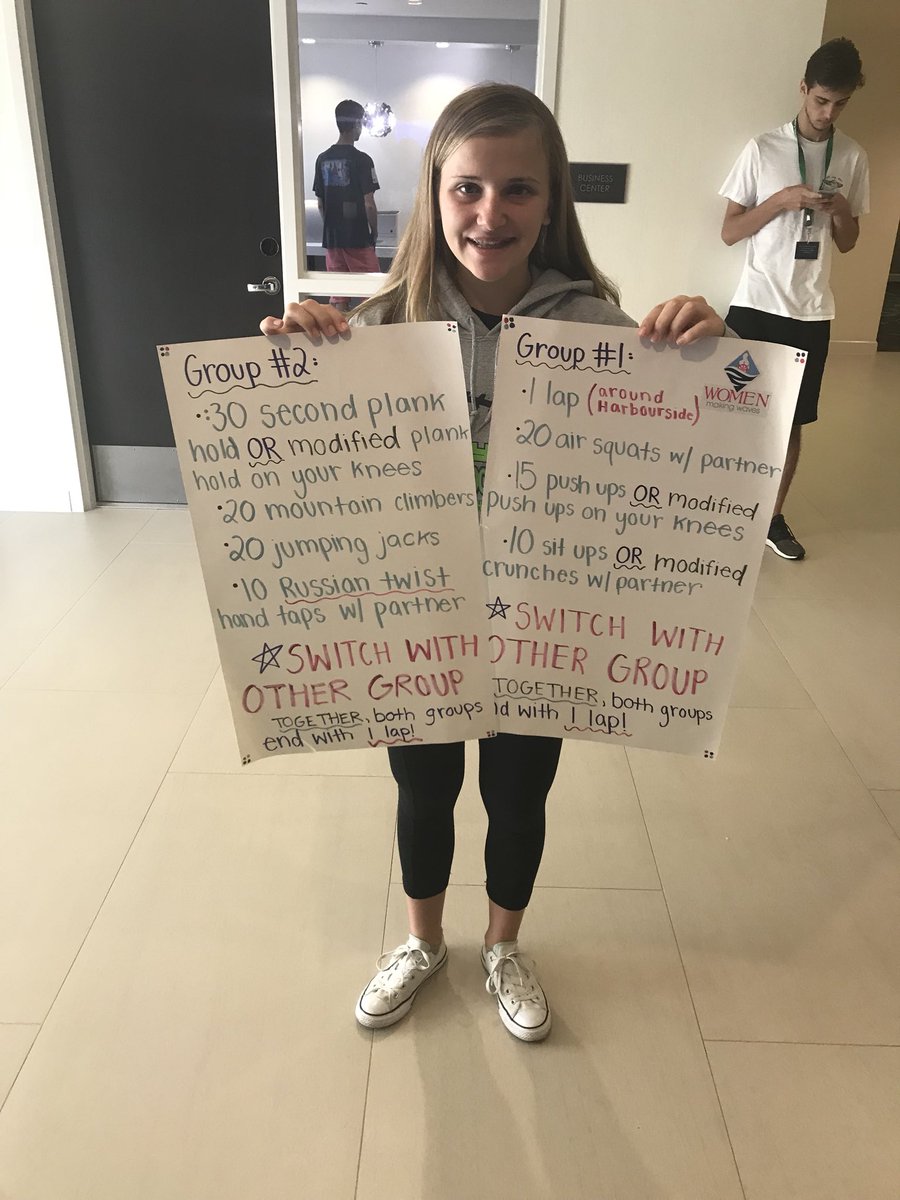 BUSINESS
CENTER
Group #2:
·:30 second plank
hold OR modified plank
hold on your knees
·20 mountain climbers
·20 jumping jacks
·10 Russian twist
hand taps w/ partner
☆SWITCH WITH
OTHER GROUP
TOGETHER, both groups
end with 1 lap!
Group #1:
·1 lap (around
Harbourside)
WOMEN
making waves
·20 air squats w/ partner
·15 push ups OR modified
push ups on your knees
·10 sit ups OR modified
crunches w/ partner
☆SWITCH WITH
OTHER GROUP
TOGETHER, both groups
nd with 1 lap!